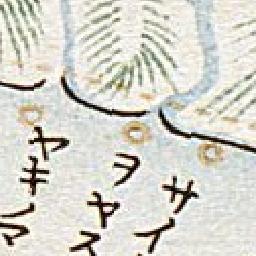 サイ
ヲヤス
ヤキ